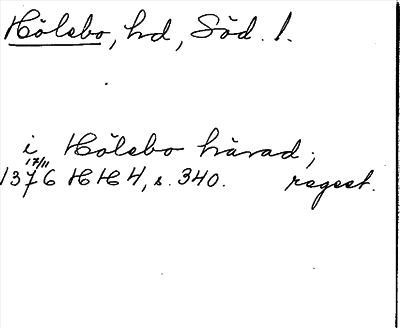 Hölebo, hd, Söd. l.
i Hölebo härad;
17/11
1376 HH4, s. 340. regest.